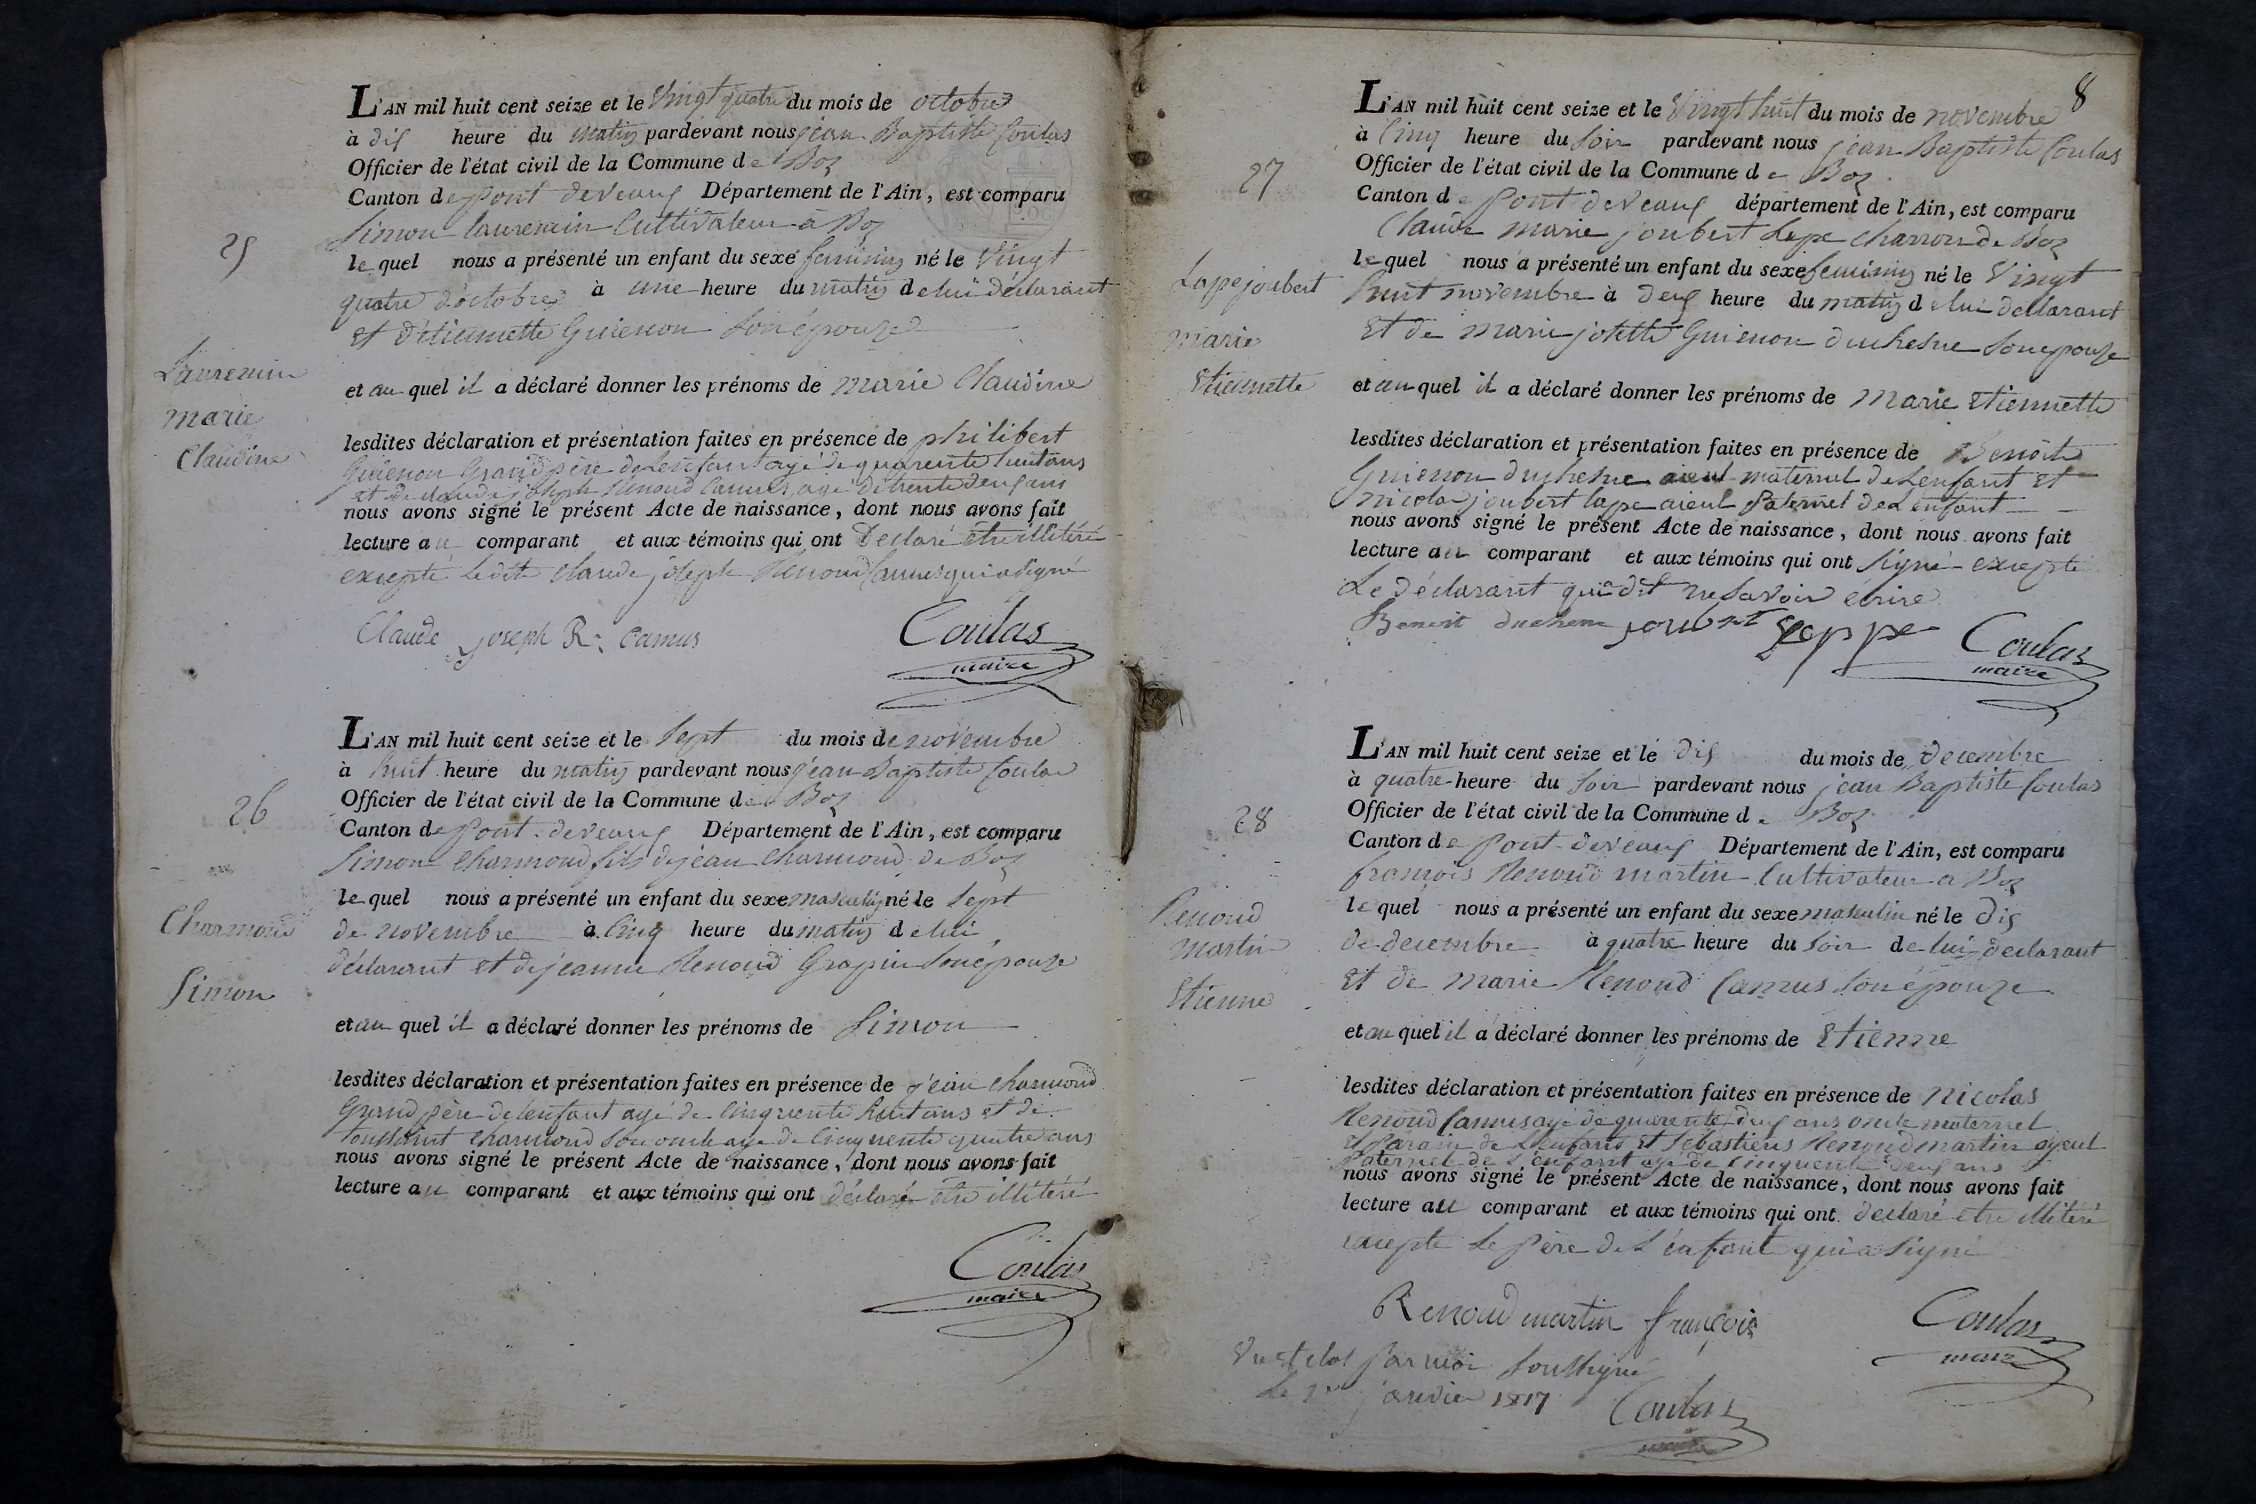 25
Laurencin
marie
Claudine
L'AN mil huit cent seize et le Vingt quatre du mois de octobre
à dix heure du matin pardevant nous jean Baptiste Coulas
Officier de l'état civil de la Commune de Boz
Canton de pont deveaux Département de l'Ain, est comparu
Simon laurencin Cultivateur à Boz
le quel nous a présenté un enfant du sexe feminin né le Vingt
quatre d'octobre à une heure du matin de lui déclarant
et d'étiennette Guienon son épouze
et au quel il a déclaré donner les prénoms de marie Claudine
lesdites déclaration et présentation faites en présence de philibert
Guienon Grand père de Lenfant agé de quarente huit ans
et de claude joseph Renoud Camus, agé de trente deux ans
nous avons signé le présent Acte de naissance, dont nous avons fait
lecture au comparant et aux témoins qui ont Declaré etre illitéré
excepté ledit claude joseph Renoud Camus qui a signé
Claude joseph R: Camus Coulas
maire
26
Charmond
Simon
L'AN mil huit cent seize et le Sept du mois de novembre
à huit heure du matin pardevant nous jean Baptiste Coulas
Officier de l'état civil de la Commune de Boz
Canton de pont-deveaux Département de l'Ain, est comparu
Simon Charmond fils de jean Charmond de Boz
le quel nous a présenté un enfant du sexe masculin né le Sept
de novembre à Cinq heure du matin de lui
déclarant et de jeanne Renoud Grapin son épouze
et au quel il a déclaré donner les prénoms de Simon
lesdites déclaration et présentation faites en présence de jean charmond
Grand père de lenfant agé de Cinquente huit ans et de
toussaint charmond son oncle agé de Cinquente quatre ans
nous avons signé le présent Acte de naissance, dont nous avons fait
lecture au comparant et aux témoins qui ont déclaré etre illitéré
Coulas
maire
8
27
Lappe joubert
marie
Etiennette
L'AN mil huit cent seize et le Vingt huit du mois de novembre
à Cinq heure du Soir pardevant nous jean Baptiste Coulas
Officier de l'état civil de la Commune de Boz
Canton de pont deveaux département de l'Ain, est comparu
Claude marie joubert Lape charron de Boz
le quel nous a présenté un enfant du sexe feminin né le Vingt
huit novembre à deux heure du matin de lui déclarant
Et de marie josette Guienon duchesne son epouze
et au quel il a déclaré donner les prénoms de Marie Etiennette
lesdites déclaration et présentation faites en présence de Benoit
Guienon duchesne aieul maternel de Lenfant et
nicolas joubert lape aieul paternel de Lenfant
nous avons signé le présent Acte de naissance, dont nous avons fait
lecture au comparant et aux témoins qui ont signé excepté
Le déclarant qui a dit ne savoir écrire
Benoit duchene joubert Lappe Coulas
maire
28
Renoud
martin
Etienne
L'AN mil huit cent seize et le dix du mois de decembre
à quatre heure du Soir pardevant nous jean Baptiste Coulas
Officier de l'état civil de la Commune de Boz
Canton de pont-deveaux Département de l'Ain, est comparu
françois Renoud martin Cultivateur a Boz
le quel nous a présenté un enfant du sexe masculin né le dix
de decembre à quatre heure du Soir de lui declarant
et de marie Renoud Camus son épouze
et au quel il a déclaré donner les prénoms de Etienne
lesdites déclaration et présentation faites en présence de Nicolas
Renoud Camus agé de quarente deux ans oncle maternel
et parain de Lenfant et Sébastiens Renoud martin ayeul
paternel de L'enfant agé de cinquente deux ans
nous avons signé le présent Acte de naissance, dont nous avons fait
lecture au comparant et aux témoins qui ont declaré etre illitéré
excepté Le père de L'enfant qui a signé
Renoud martin françois Coulas
maire
par moi soussigné
Le 1er janvier 1817
Coulas
maire